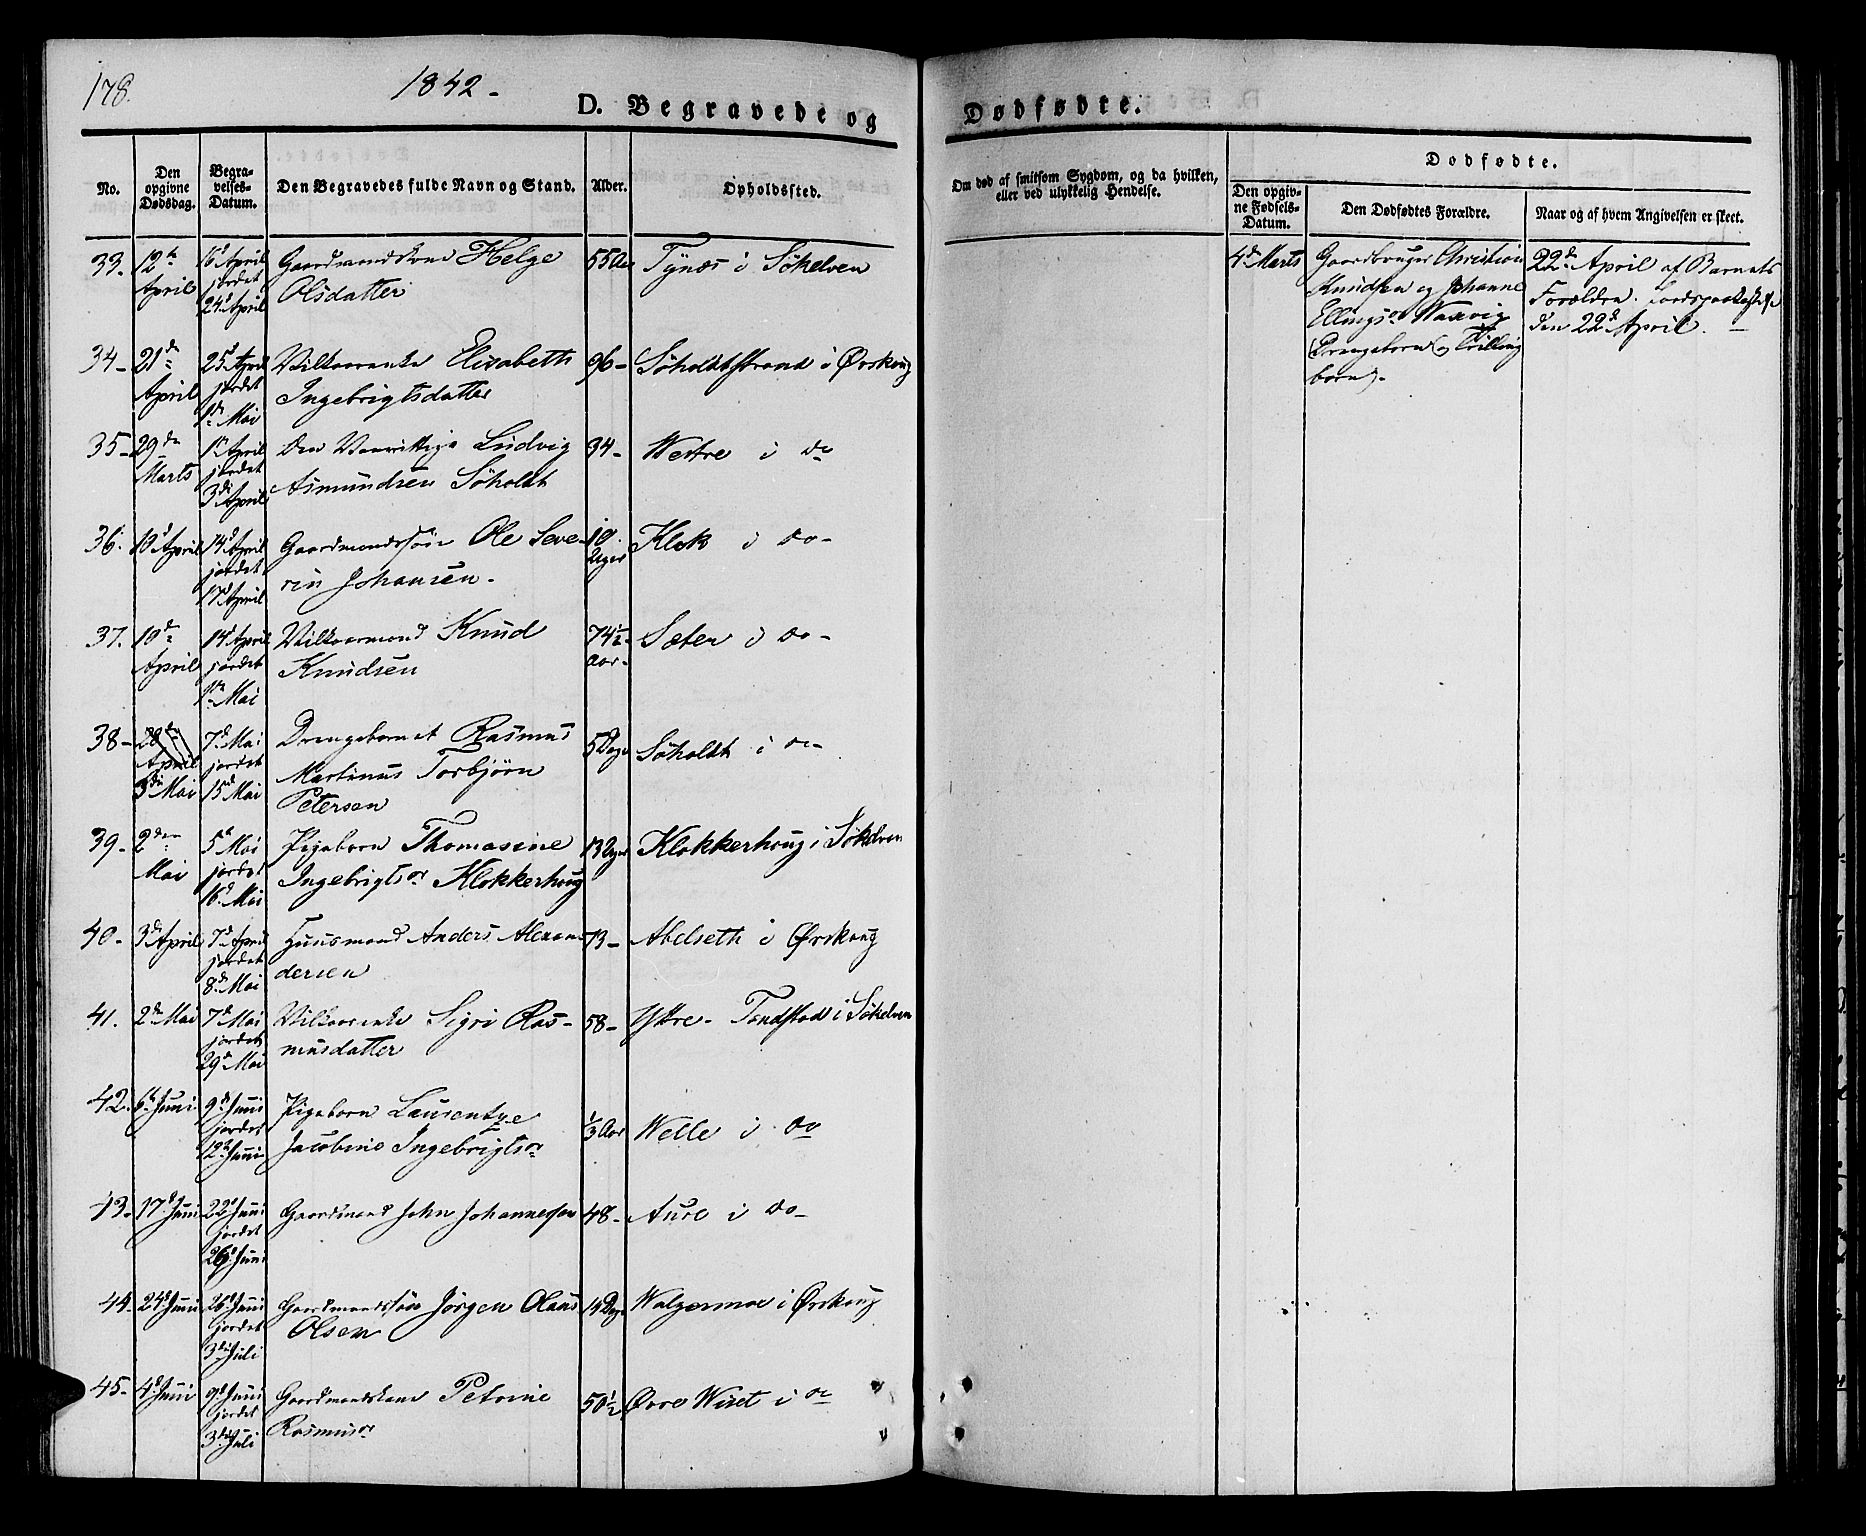 178.
1842-
D. Begravede og
Dødfødte.
No.
Den opgivne Dødsdag.
Begravelses-Datum.
Den Begravedes fulde Navn og Stand.
Alder.
Opholdssted.
Om død af smitsom Sygdom, og da hvilken, eller ved ulykkelig Hendelse.
Dødfødte.
Den opgivne Fødsels-Datum.
Den Dødfødtes Forældre.
Naar og af hvem Angivelsen er skeet.
33. 12te April 16d April jordet 24d April Gaardmandskone Helge Olsdatter 55 Aar Tynæs i Søkelven
34- 21de April 25d April jordet 1de Mai Vilkaarenke Elisabeth Ingebrigtsdatter 96- Søholdtstrand i Ørskoug
35- 29de Marts 1te April jordet 3di April Den Vanvittige Ludvig Asmundsen Søholdt 34- Westre i do
36. 10d April 14d April jordet 17d April Gaardmandssøn Ole Severin Johansen. 10 Uger Klok i do-
37. 10de April 14d April jordet 1te Mai Vilkaarmand Knud Knudsen 74½ Aar- Sæter i do-
38- 28de April 3di Mai 7d Mai jordet 15d Mai Drengebarnet Rasmus Martinus Torbjørn Petersen 5 Dage Søholdt i do
39- 2den Mai 5te Mai jordet 16d Mai Pigebarn Thomasine Ingebrigtsdr Klokkerhoug 13 Dage Klokkerhoug i Søkelven
40. 3di April 7d April jordet 8d Mai Huusmand Anders Alexandersen 73- Abelseth i Ørskoug
41. 2de Mai 7d Mai jordet 29d Mai Vilkaarenke Sigri Rasmusdatter 58- Yttre- Tandstad i Søkelven
42. 6te Juni 9d Juni jordet 12te Juni Pigebarn Laurentze Jacobine Ingebrigtsdr ⅓ Aar Welle i do
43. 17d Juni 22d Juni jordet 26d Juni Gaardmand John Johannesen 48- Aure i do-
44. 24d Juni 26d Juni jordet 3di Juli Gaardmandssøn Jørgen Olaus Olsen 14 Dage Walgermoe i Ørskoug
45- 4d Juni 9d Juni jordet 3di Juli Gaardmandskone Petrine Rasmusdr 50½ Øvre Wiset i do
4d Marts
Gaardbruger Christian
Knudsen og Johanne
Ellingsdr Waxvig
(Drengebarn og Trilling
barn).
22de April af Barnets
Forældre. Jordspaakastelse
den 22d April. -